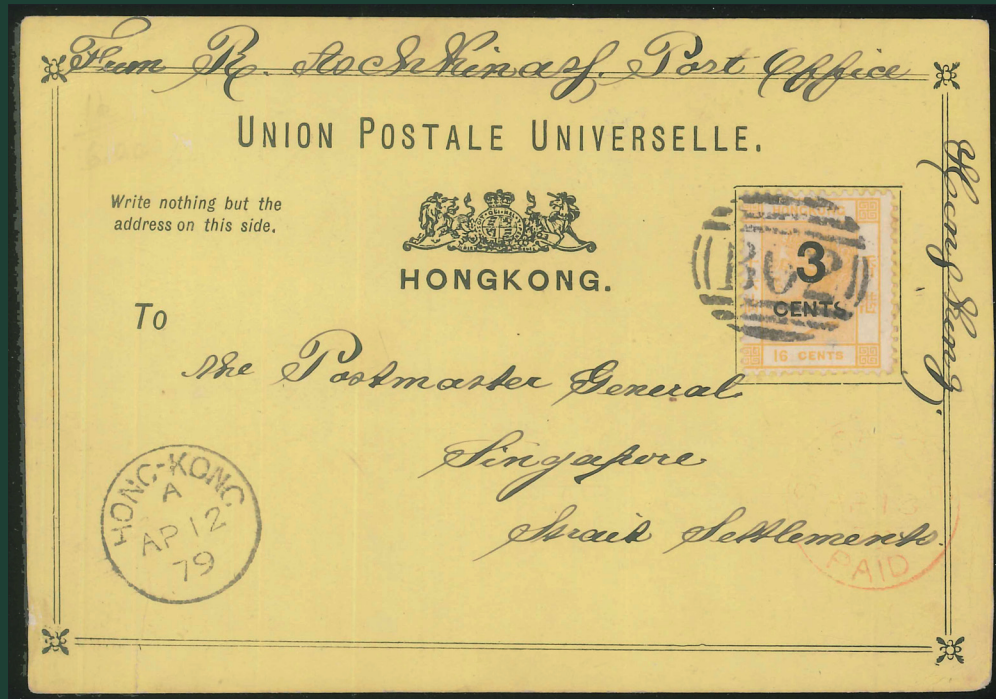 From R.
Post Office
Hong Kong
UNION POSTALE UNIVERSELLE.
Write nothing but the
address on this side.
HONGKONG.
B62
3
CENTS
16 CENTS
To
the Postmaster General
Singapore
Strait Settlements.
HONG-KONG
A
AP 12
79
PAID